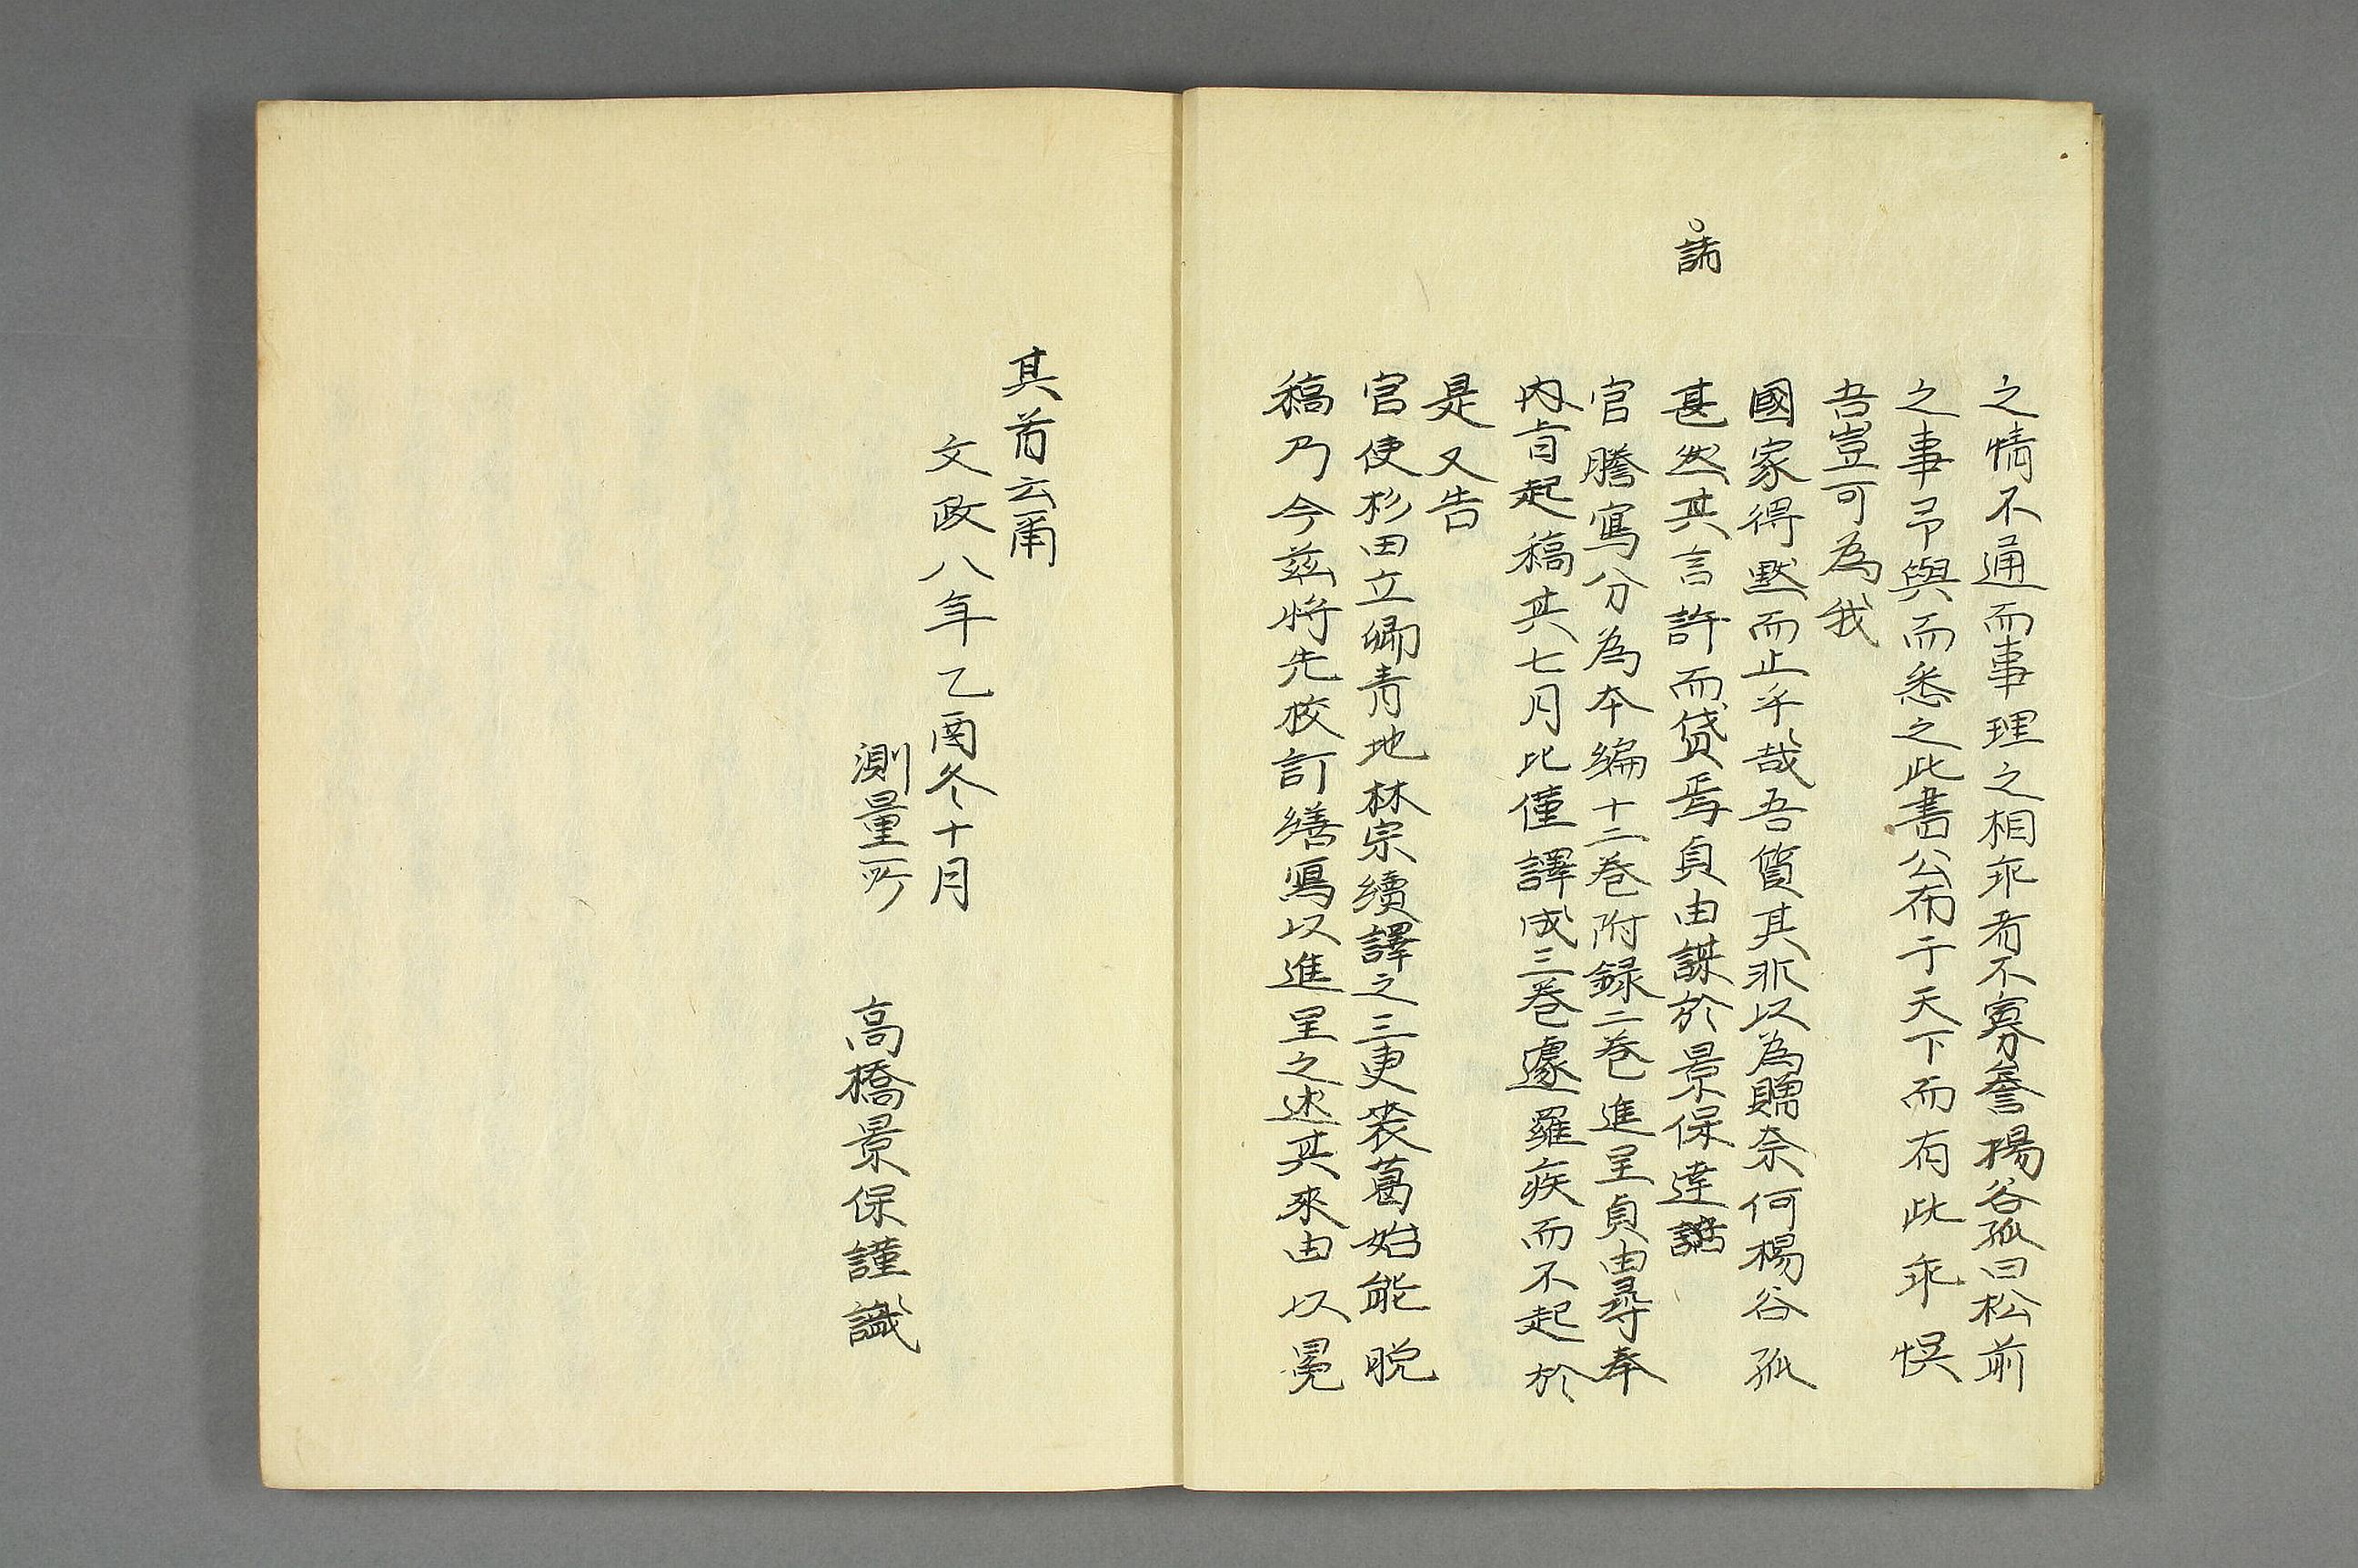 請
之情不通而事理之相乖者不寡誉揚谷孤曰松前
之事吊與而悉之此書公布于天下而有此乖悞
吾豈可為我
國家得黙而止乎哉吾質其非以為贈奈何楊谷孤
甚然其言許而貸焉貞由謀於景保達
官謄寫分為本編十二巻附録二巻進呈貞由尋奉
内旨起稿其七月比僅譯成三巻遽羅疾而不起於
是又告
官使杉田立卿青地林宗續譯之三更裘葛始能脱
稿乃今茲將先校訂繕寫以進呈之述其來由以冕
其首云爾
文政八年乙酉冬十月
測量所 高橋景保謹識